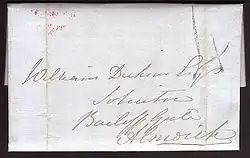 William Dickson Esq
Solicitor
Bailiff Gate
Alnwick